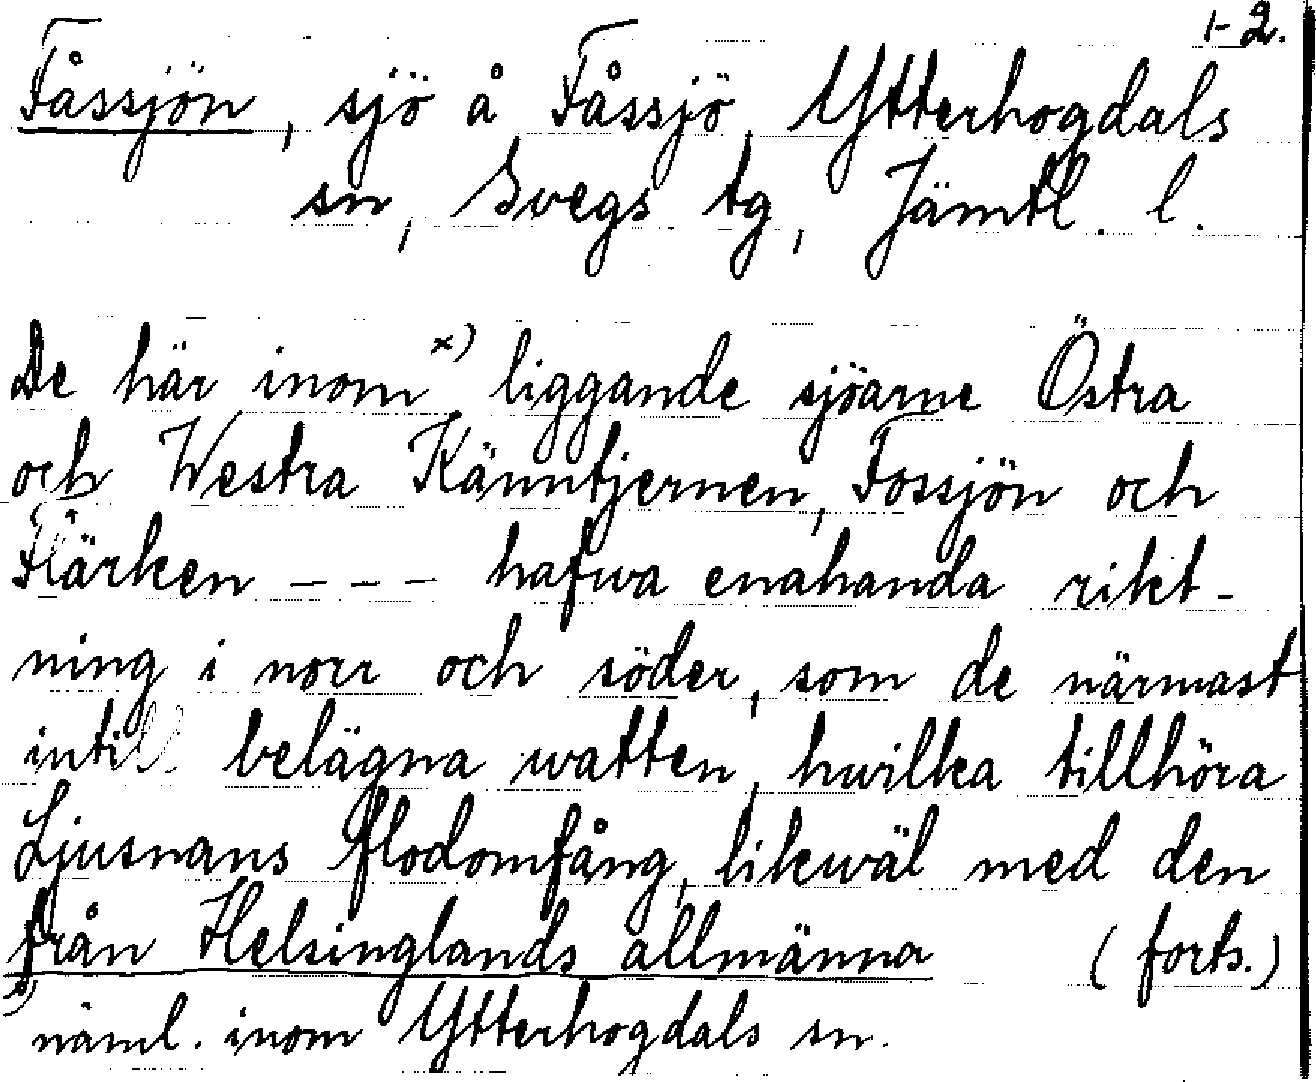 1-2.
Fåssjön, sjö å Fåssjö, Ytterhogdals
sn, Svegs tg, Jämtl. l.
De här inom x) liggande sjöarne Östra
och Westra Känntjernen, Fossjön och
Flärken - - - hafwa enahanda rikt-
ning i norr och söder, som de närmast
intill belägna watten, hwilka tillhöra
Ljusnans flodomfång, likwäl med den
från Helsinglands allmänna (forts.)
x) näml. inom Ytterhogdals sn.